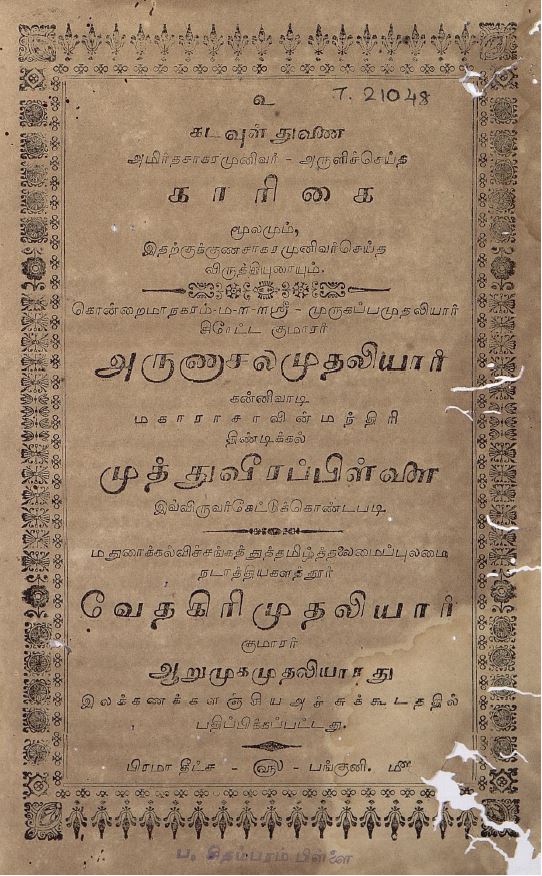 உ
T. 21048
கடவுள் துணை
அமிர்தசாகரமுனிவர் - அருளிச்செய்த
காரிகை
மூலமும்,
இதற்குக்குணசாகரமுனிவர்செய்த
விருத்தியுரையும்.
கொன்றைமாநகரம்-ம-ள-ள-ஸ்ரீ - முருகப்பமுதலியார்
சிரேட்ட குமாரர்
அருணாசலமுதலியார்
கன்னிவாடி
மகாராசாவின்மந்திரி
திண்டிக்கல்
முத்துவீரப்பிள்ளை
இவ்விருவர்கேட்டுக்கொண்டபடி
மதுரைக்கல்விச்சங்கத்துத்தமிழ்த்தலைமைப்புலமை
நடாத்தியகளத்தூர்
வேதகிரிமுதலியார்
குமாரர்
ஆறுமுகமுதலியாரது
இலக்கணக்களஞ்சிய அச்சுக்கூடத்தில்
பதிப்பிக்கப்பட்டது.
பிரமாதீட்ச - ௵ - பங்குனி. ௴
ப. சிதம்பரம் பிள்ளை